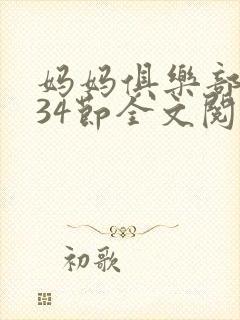 妈妈俱樂部
34節全文閱
初歌